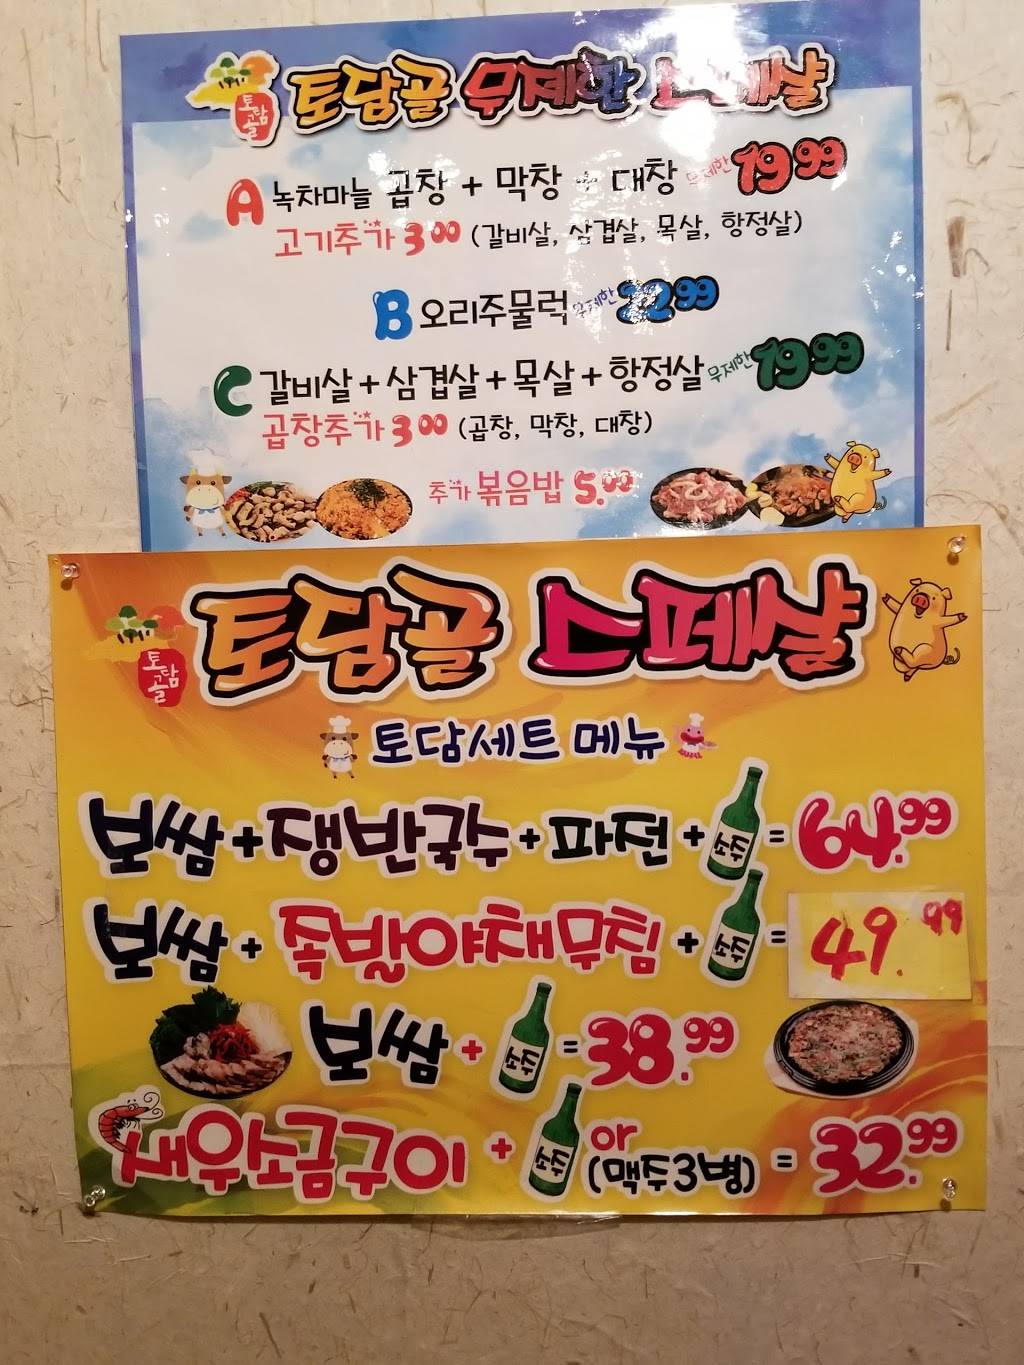 토담골
토담골 무제한 스페샬
A 녹차마늘 곱창 + 막창 + 대창 무제한 19.99
고기추가 3.00 (갈비살, 삼겹살, 목살, 항정살)
B 오리주물럭 무제한 22.99
C 갈비살 + 삼겹살 + 목살 + 항정살 무제한 19.99
곱창추가 3.00 (곱창, 막창, 대창)
추가 볶음밥 5.00
토담골
토담골 스페샬
토담세트 메뉴
보쌈 + 쟁반국수 + 파전 + 소주 = 64.99
보쌈 + 족발야채무침 + 소주 = 49.99
보쌈 + 소주 = 38.99
새우소금구이 + 소주 or (맥주3병) = 32.99